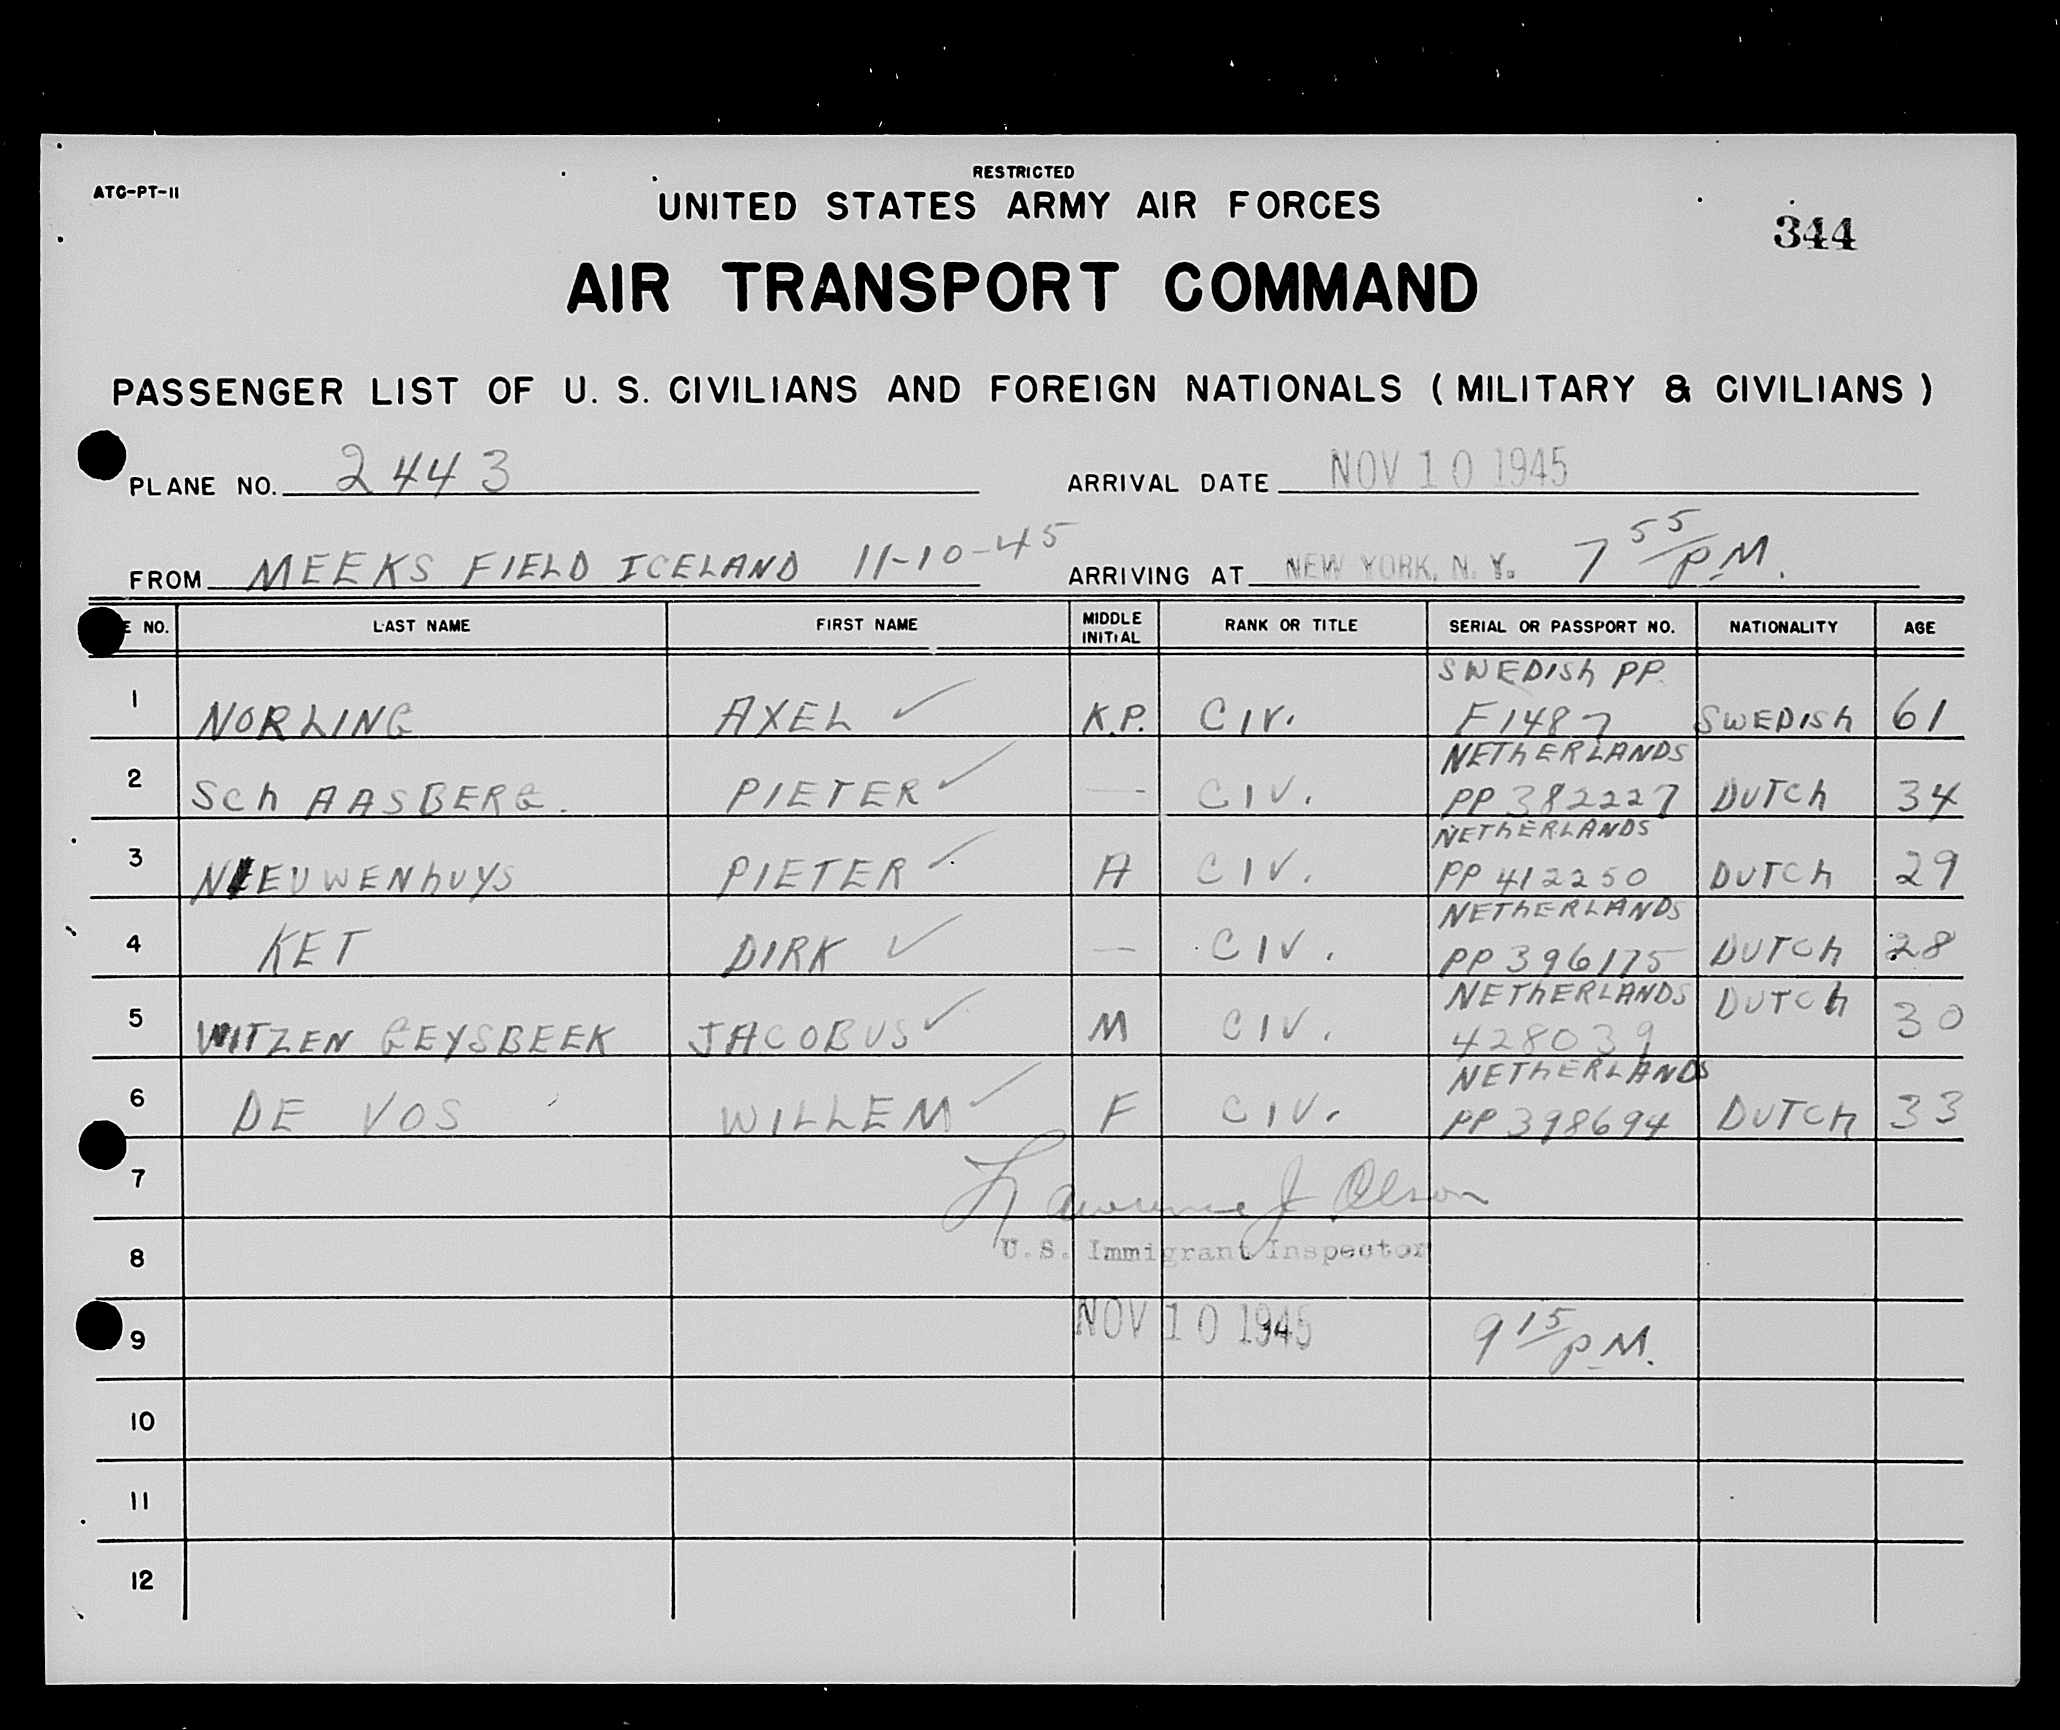 RESTRICTED
ATC-PT-11
UNITED STATES ARMY AIR FORCES
344
AIR TRANSPORT COMMAND
PASSENGER LIST OF U. S. CIVILIANS AND FOREIGN NATIONALS ( MILITARY & CIVILIANS )
PLANE NO. 2443 ARRIVAL DATE NOV 10 1945
FROM MEEKS FIELD ICELAND 11-10-45 ARRIVING AT NEW YORK, N. Y. 7 55/P.M.
E NO. LAST NAME FIRST NAME MIDDLE INITIAL RANK OR TITLE SERIAL OR PASSPORT NO. NATIONALITY AGE
SWEDISh PP.
1 NORLING AXEL ✓ K.P. CIV. F1487 SWEDISh 61
NEThERLANDS
2 SCh AASBERG. PIETER ✓ — CIV. PP 382227 DUTCh 34
NEThERLANDS
3 NIEUWENhUYS PIETER ✓ A CIV. PP 412250 DUTCh 29
NEThERLANDS
4 KET DIRK ✓ — CIV. PP 396175 DUTCh 28
NEThERLANDS
5 WITZEN GEYSBEEK JACOBUS ✓ M CIV. 428039 DUTCh 30
NEThERLANDS
6 DE VOS WILLEM ✓ F CIV. PP 398694 DUTCh 33
7 Lawrence J Olson
8 U.S. Immigrant Inspector
9 NOV 10 1945 9 15/P.M.
10
11
12